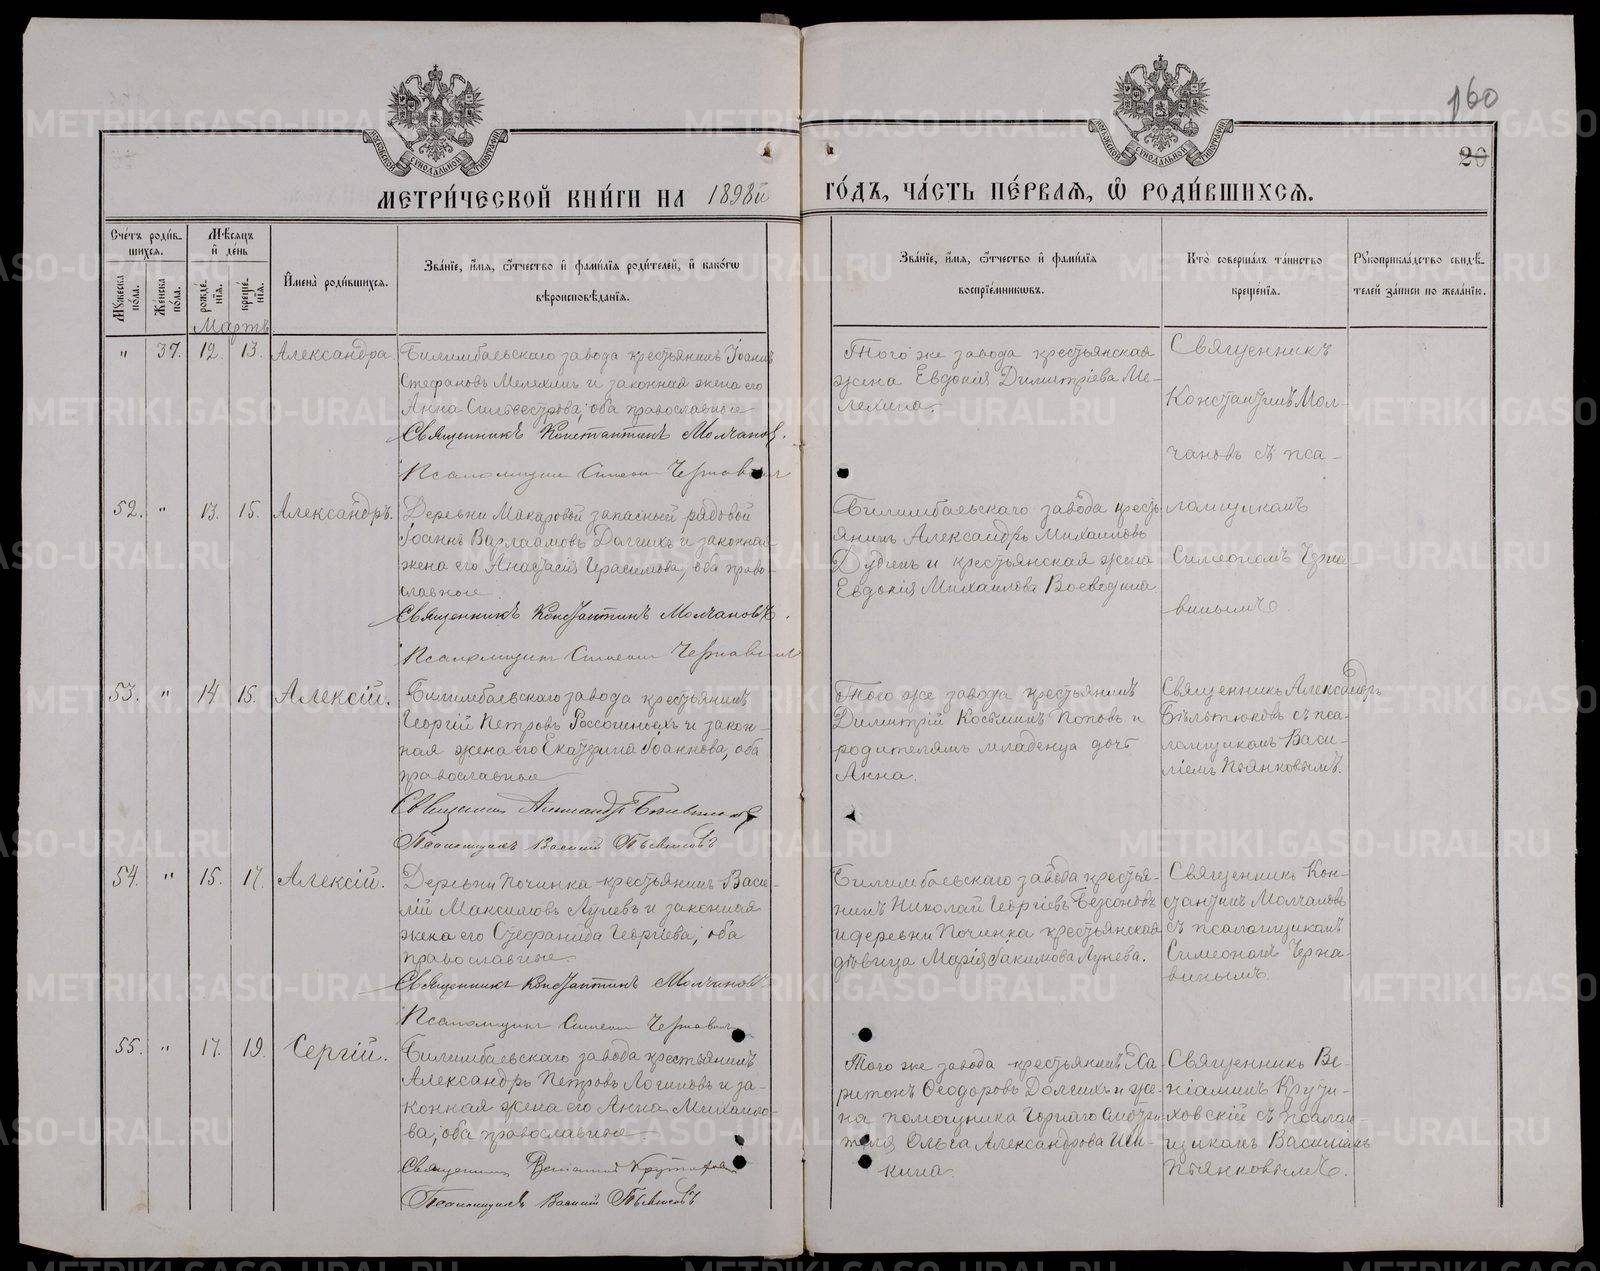 160
20
МЕТРИ́ЧЕСКОЙ КНИ́ГИ НА 1898й
ГО́ДЪ, ЧА́СТЬ ПЕ́РВАѦ, Ѡ҆ РОДИ́ВШИХСѦ.
Сче́тъ роди́вшихсѧ.
Мѣ́сѧцъ и҆ де́нь
Мꙋ́жеска по́ла.
Же́нска по́ла.
рожде́нїѧ.
креще́нїѧ.
И҆мена̀ роди́вшихсѧ.
Зва́нїе, и҆́мѧ, ѻ҆́тчество и҆ фами́лїѧ роди́телей, и҆ како́гѡ
вѣроисповѣ́данїѧ.
Зва́нїе, и҆́мѧ, ѻ҆́тчество и҆ фами́лїѧ
воспрїе́мникѡвъ.
Кто̀ соверша́лъ та́инство
креще́нїѧ.
Рꙋкоприкла́дство свидѣ́-
телей за́писи по жела́нїю.
Мартъ
" 37. 12. 13. Александра.
Билимбаевскаго завода крестьянинъ Іоаннъ
Стефановъ Мелехинъ и законная жена его
Анна Сильвестрова; оба православные
Священникъ Константинъ Молчановъ.
Псаломщикъ Симеонъ Чернавинъ
Того же завода крестьянская
жена Евдокія Димитріева Ме-
лехина.
Священникъ
Константинъ Мол-
чановъ съ пса-
ломщикомъ
Симеономъ Черна-
винымъ.
52. " 13. 15. Александръ.
Деревни Макаровой запасный рядовой
Іоаннъ Варлаамовъ Долгихъ и законная
жена его Анастасія Герасимова, оба право-
славные.
Священникъ Константинъ Молчановъ.
Псаломщикъ Симеонъ Чернавинъ
Билимбаевскаго завода кресть-
янинъ Александръ Михаиловъ
Дубинъ и крестьянская жена
Евдокія Михаилова Воеводина
53. " 14. 15. Алексій.
Билимбаевскаго завода крестьянинъ
Георгій Петровъ Россошныхъ и закон-
ная жена его Екатерина Іоаннова, оба
православные
Священникъ Александръ Бѣльтюковъ
Псаломщикъ Василій Пьянковъ
Того же завода крестьянинъ
Димитрій Косьминъ Поповъ и
родителямъ младенца дочь
Анна.
Священникъ Александръ
Бѣльтюковъ съ пса-
ломщикомъ Васи-
ліемъ Пьянковымъ.
54. " 15. 17. Алексій.
Деревни Починка крестьянинъ Васи-
лій Максимовъ Луневъ и законная
жена его Стефанида Георгіева; оба
православные.
Священникъ Константинъ Молчановъ
Псаломщикъ Симеонъ Чернавинъ
Билимбаевскаго завода крестья-
нинъ Николай Георгіевъ Безсоновъ
и деревни Починка крестьянская
дѣвица Марія Іакимова Лунева.
Священникъ Кон-
стантинъ Молчановъ
съ псаломщикомъ
Симеономъ Черна-
винымъ.
55. " 17. 19. Сергій.
Билимбаевскаго завода крестьянинъ
Александръ Петровъ Логиновъ и за-
конная жена его Анна Михаило-
ва, оба православные.
Священникъ Веніаминъ
Псаломщикъ Василій Пьянковъ
Того же завода крестьянинъ Ха-
ритонъ Ѳеодоровъ Долгихъ и же-
на помощника Горнаго Смотри-
теля Ольга Александрова Ши-
кина.
Священникъ Ве-
ніаминъ
съ псалом-
щикомъ Василіемъ
Пьянковымъ.
METRIKI.GASO-URAL.RU